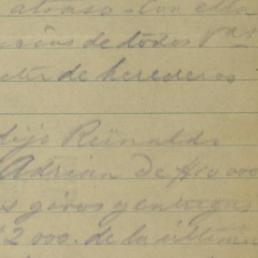 atraso. Con ello
de todos Vds
de herederos
dijo Reinaldo
Adrian de $10 000
giros y entregas
$2 000. de la última